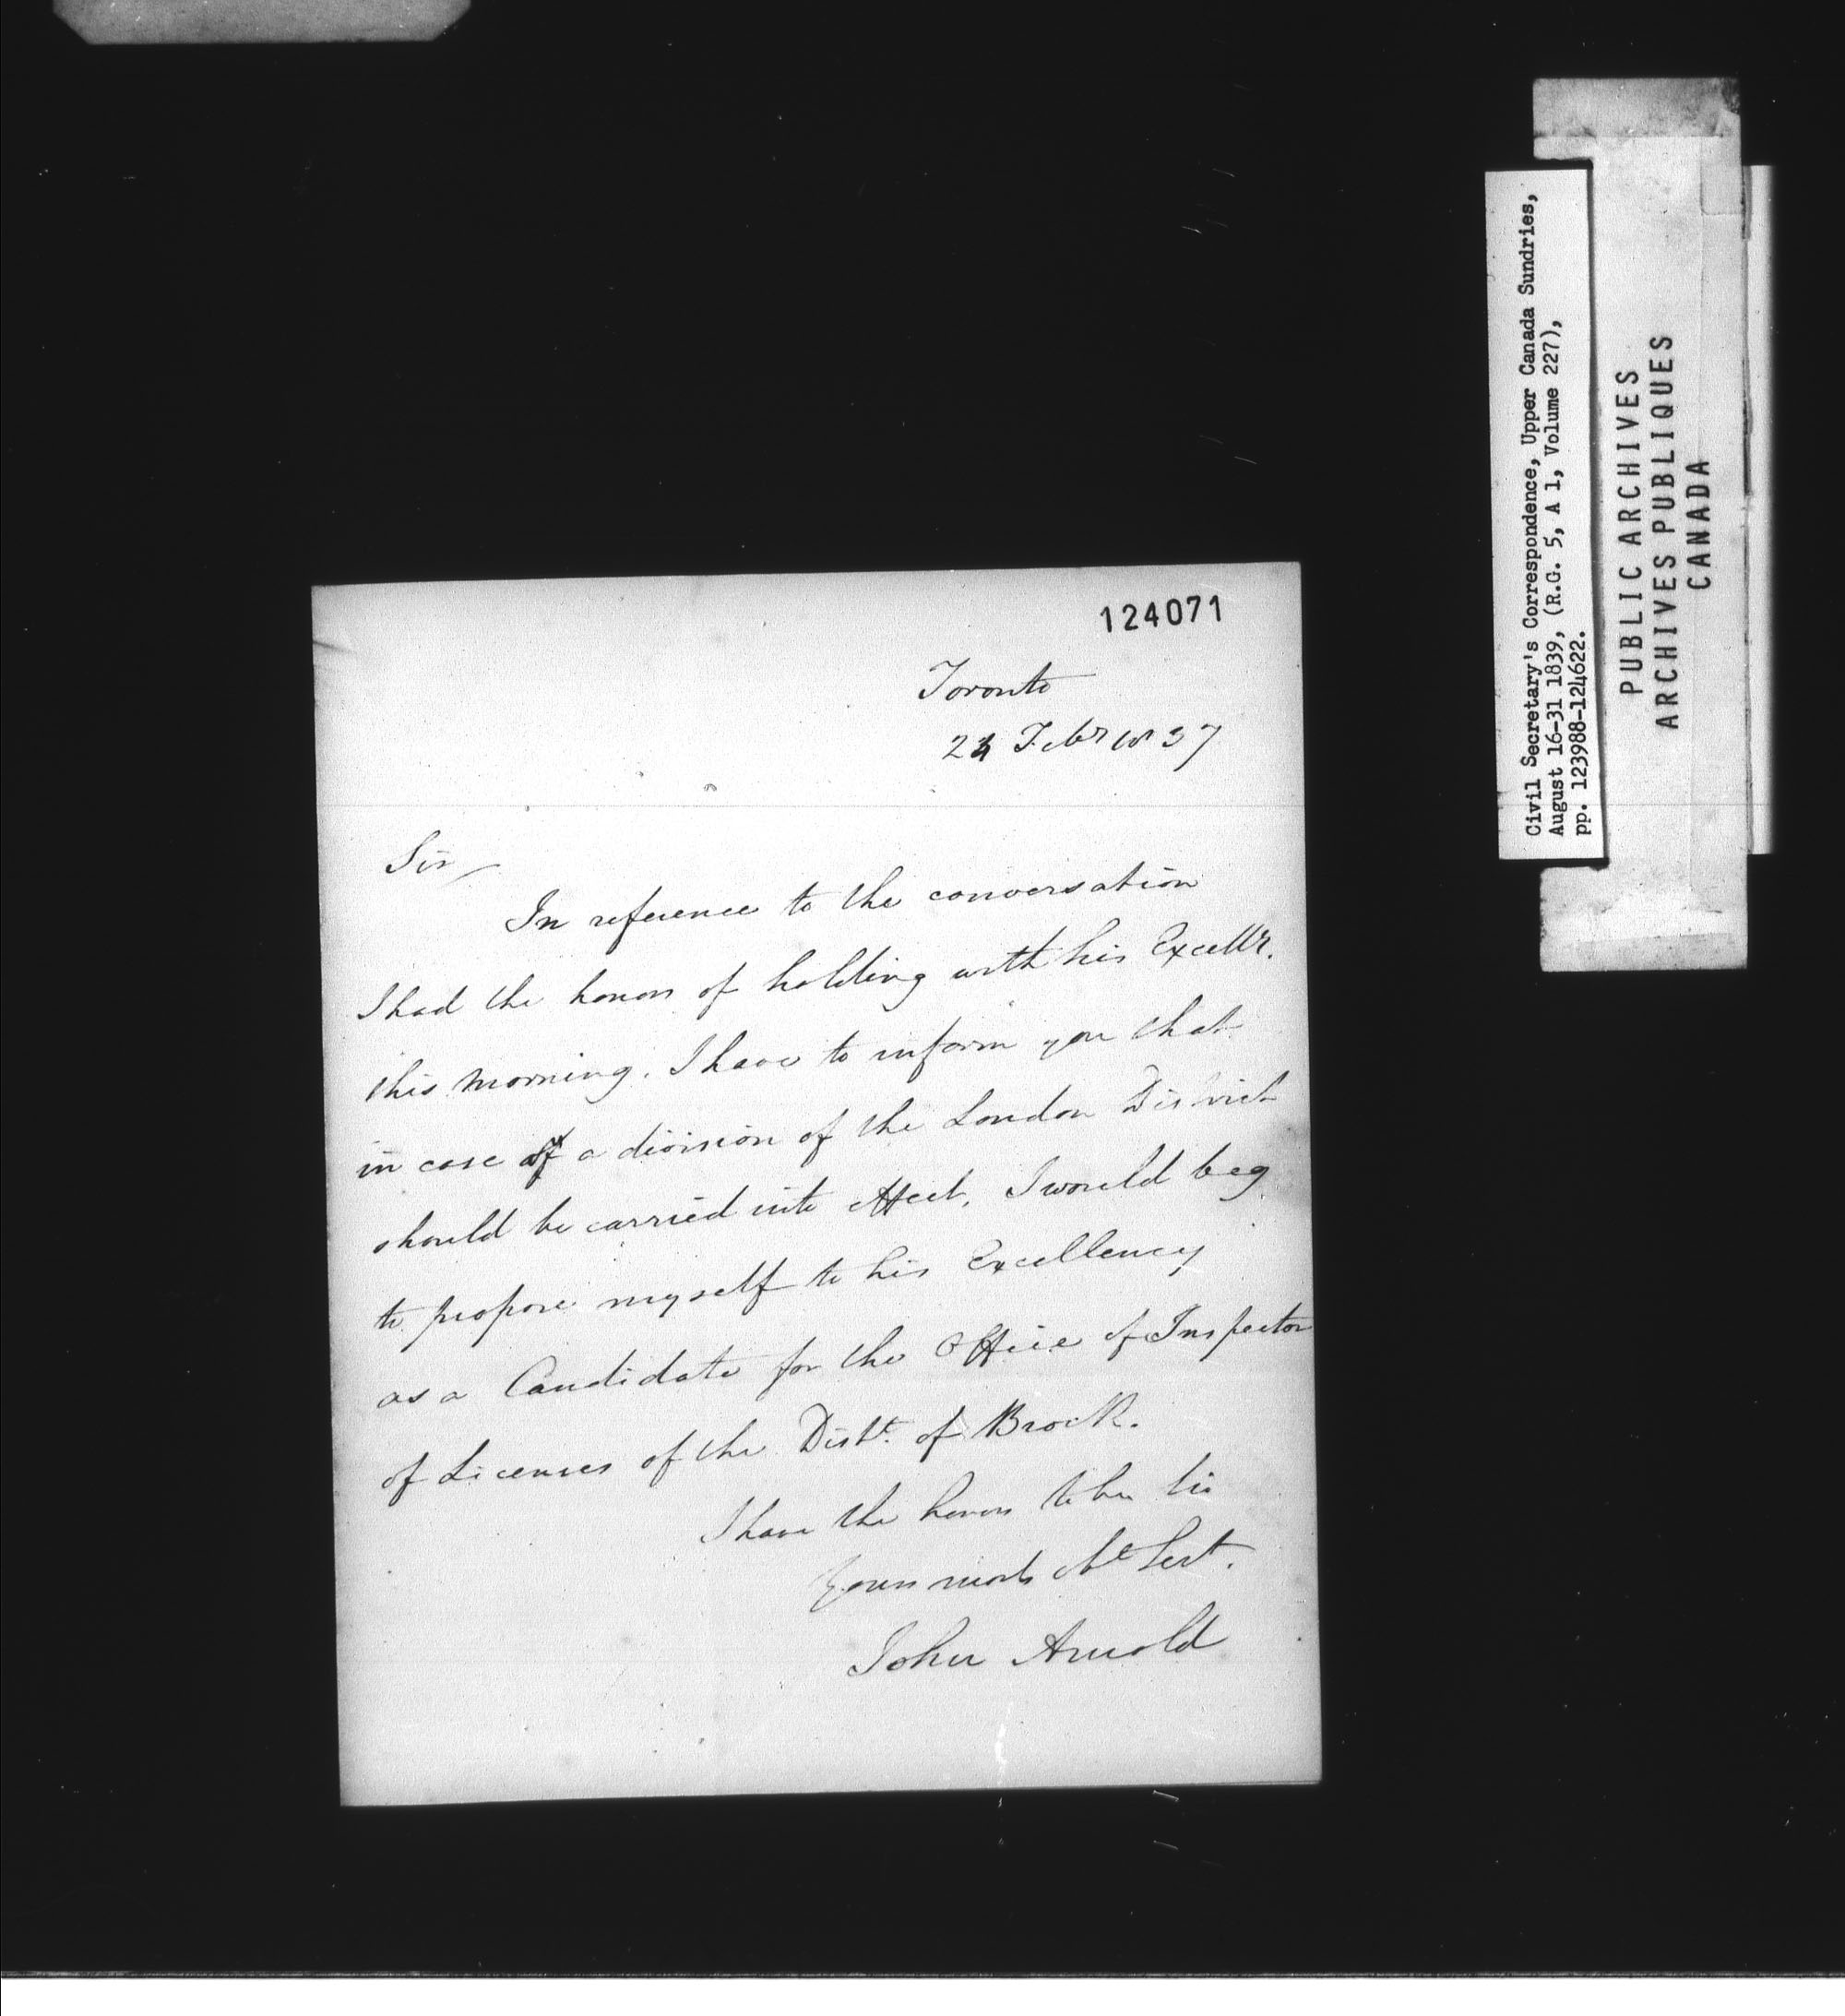 124071
Toronto
24 Febr 1837
Sir
In reference to the conversation
I had the honor of holding with his Excelly.
this morning. I have to inform you that
in case of a division of the London District
should be carried into effect, I would beg
to propose myself to his Excellency
as a Candidate for the Office of Inspector
of Licenses of the Distt. of Brock.
I have the honor to be Sir
Yours most Obt Sert.
John Arnold
Civil Secretary's Correspondence, Upper Canada Sundries,
August 16-31 1839, (R.G. 5, A 1, Volume 227),
pp. 123988-124622.
PUBLIC ARCHIVES
ARCHIVES PUBLIQUES
CANADA